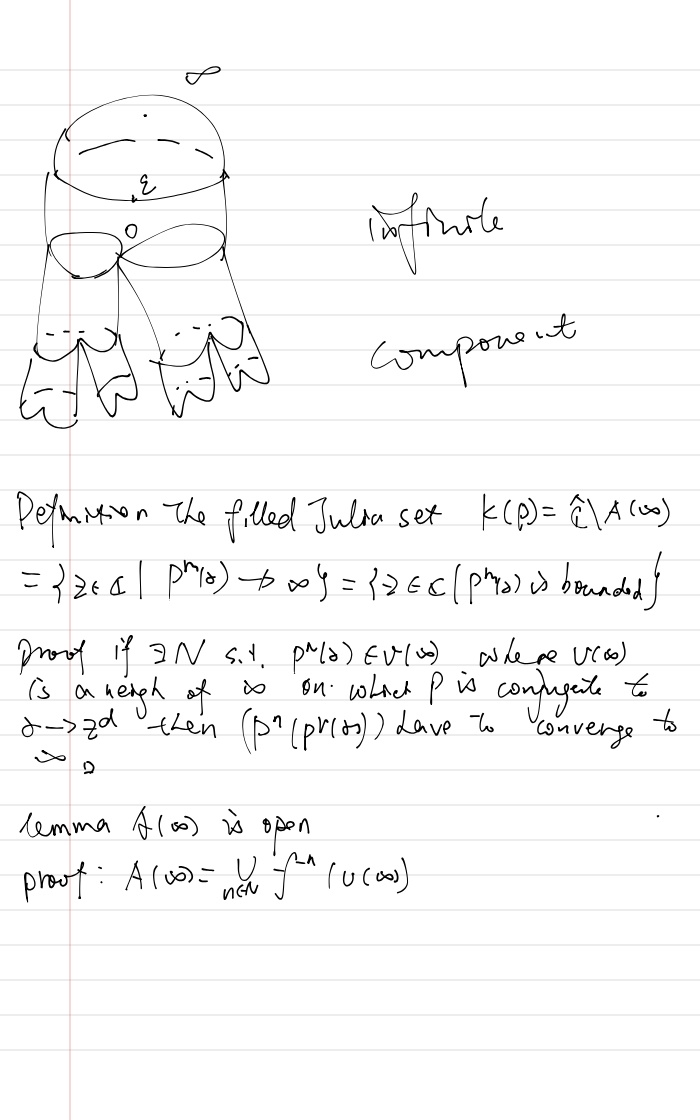 ∞
ε
0
infinite
component
Definition The filled Julia set K(p) = Ĉ\A(∞)
= {z∈ℂ | pⁿ(z) ↛ ∞} = {z∈ℂ | pⁿ(z) is bounded}
proof if ∃N s.t. pᴺ(z) ∈ U(∞) where U(∞)
is a neigh of ∞ on which P is conjugate to
z → zᵈ then (pⁿ(pᴺ(z)) have to converge to
∞ □
lemma A(∞) is open
proof : A(∞) = ⋃ f⁻ⁿ (U(∞))
n∈ℕ